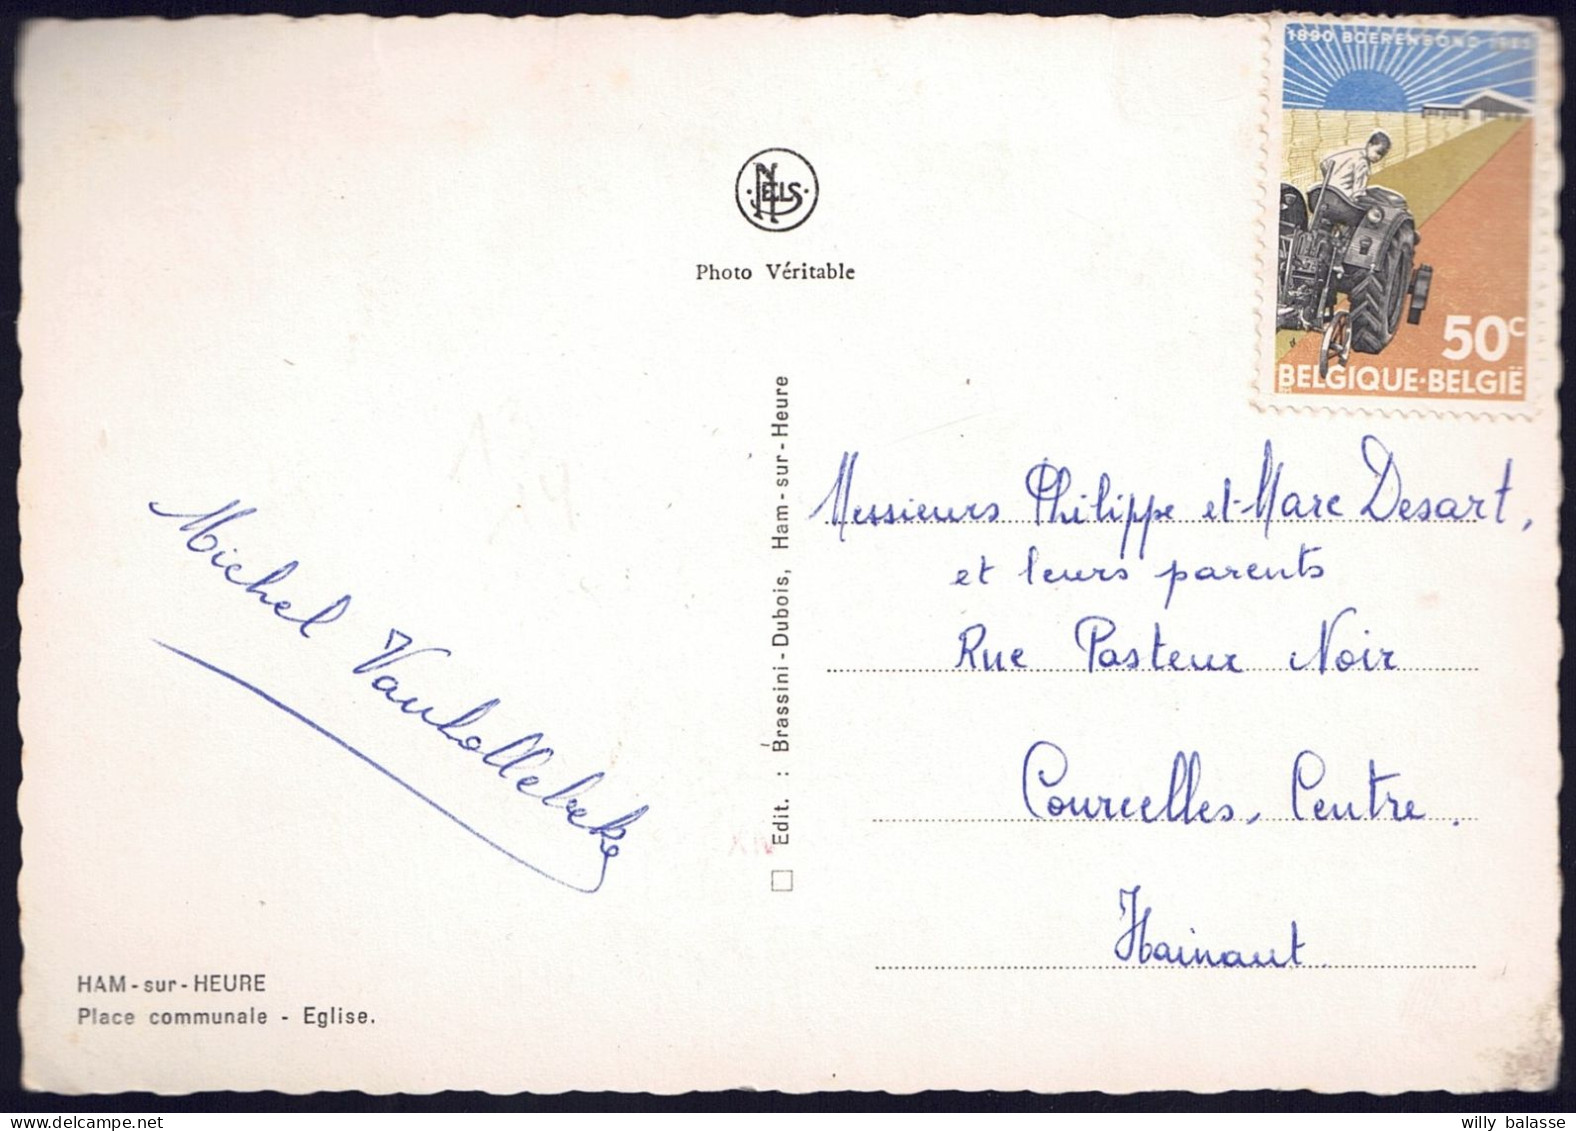 1890 BOERENBOND 1965
NELS
Photo Véritable
50c
BELGIQUE·BELGIË
Messieurs Philippe et Marc Desart,
et leurs parents
Rue Pasteur Noir
Courcelles, Centre.
Hainaut
Michel Vanhollebeke
Edit. : Brassini-Dubois, Ham-sur-Heure
HAM-sur-HEURE
Place communale - Eglise.
willy balasse